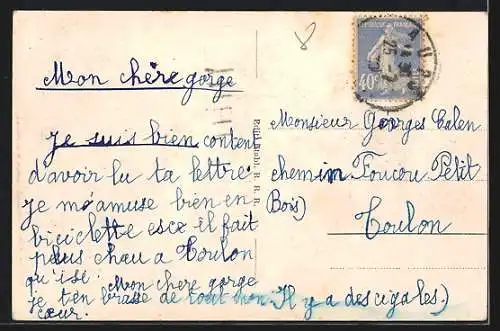 8
40c
Mon chère gorge
Je suis bien content
d'avoir lu ta lettre
je m'amuse bien en
biciclette esce il fait
plus chau a Toulon
qu'isi Mon chere gorge
je t'en brasse de tout mon
cœur.
Monsieur Georges Calen
chemin Foucou Petit
Bois)
Toulon
(Il y a des cigales.)